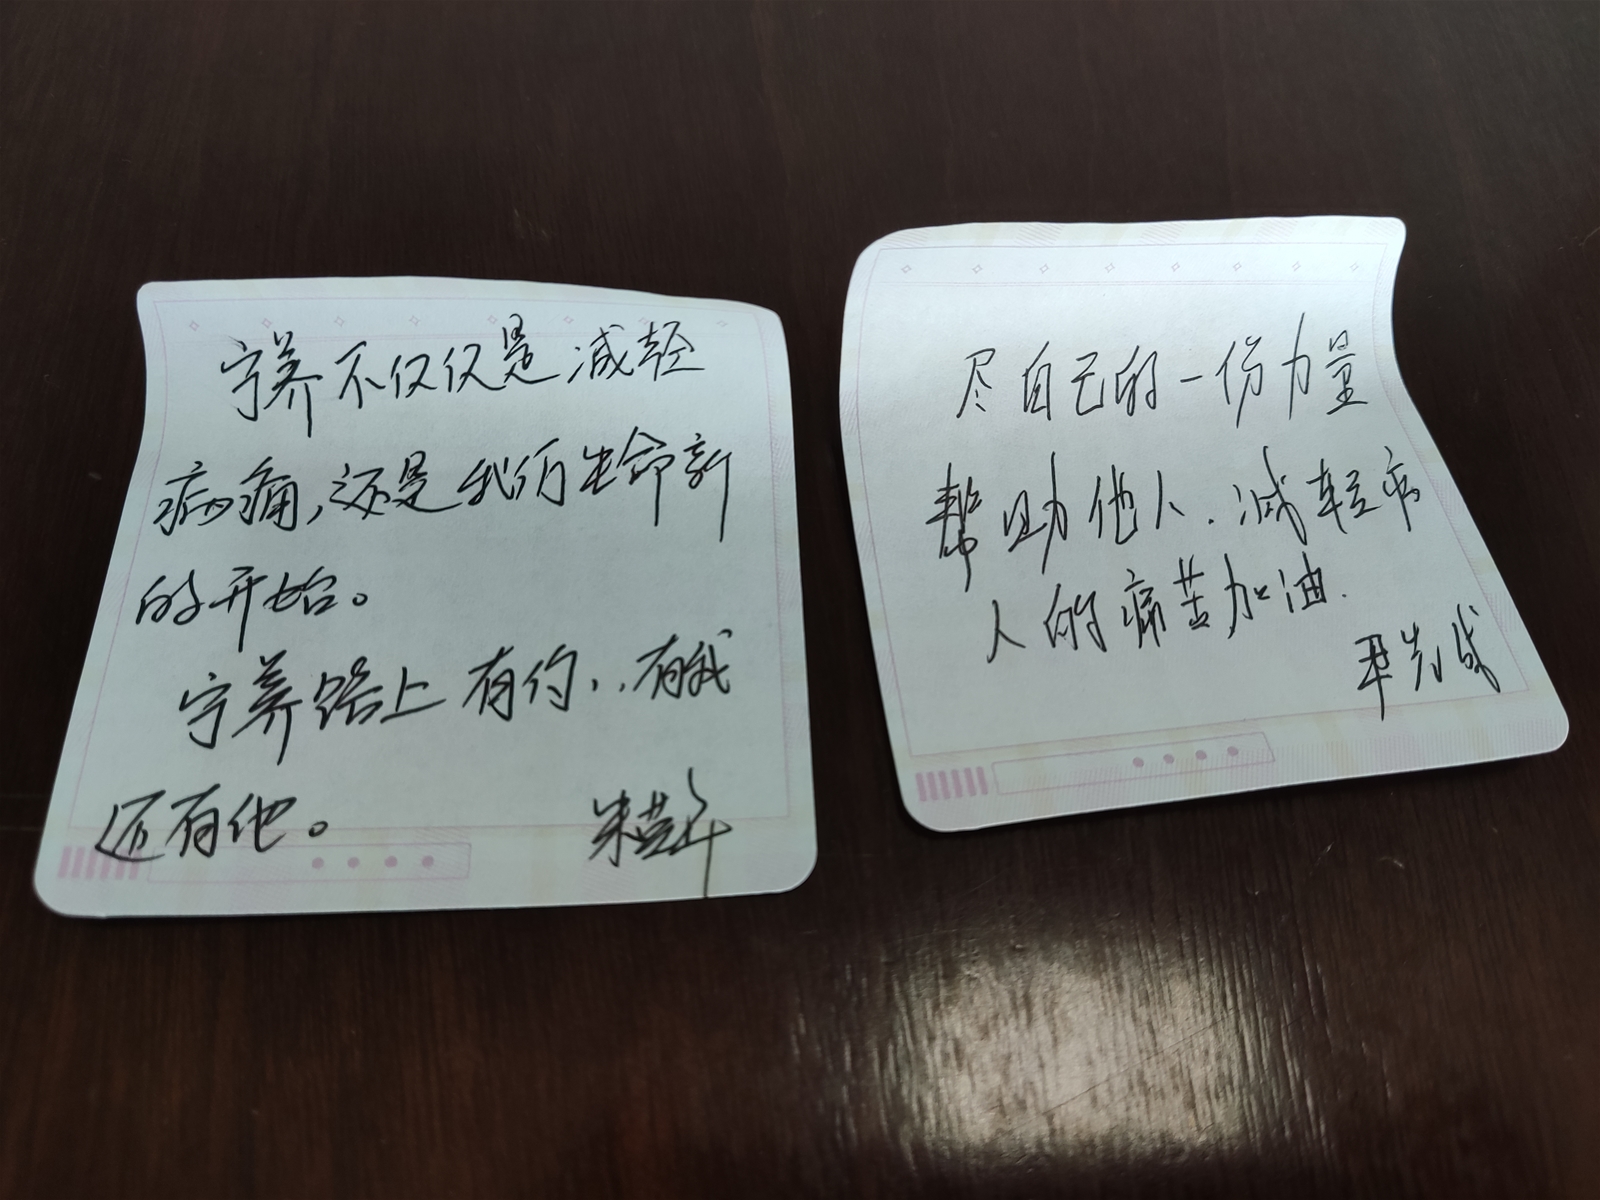 宁养不仅仅是减轻
病痛,还是我们生命新
的开始。
宁养路上有你..有我
还有他。
朱
尽自己的一份力量
帮助他人.减轻病
人的痛苦加油.
先成